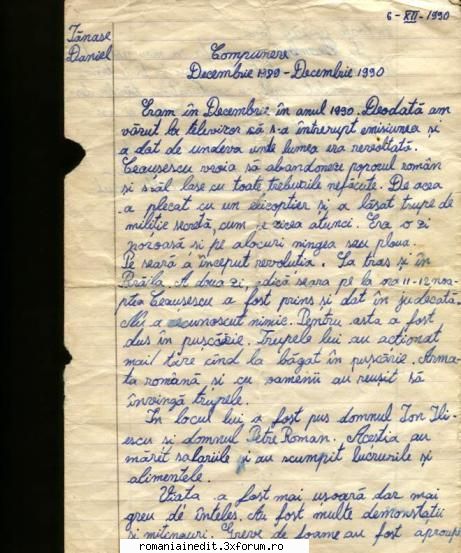 6-XII-1990
Tănase
Daniel
Compunere
Decembrie 1989 - Decembrie 1990
Eram în Decembrie în anul 1990. Deodată am
văzut la televizor că s-a întrerupt emisiunea și
a dat de undeva unde lumea era revoltată.
Ceaușescu vroia să abandoneze poporul român
și s-ăl lase cu toate treburile nefăcute. De acea
a plecat cu un elicoptier și a lăsat trupe de
miliție secretă, cum zicea atunci. Era o zi
noroasă si pe alocuri ningea sau ploua.
Pe seară a început revoluția. Sa tras și în
Brăila. A doua zi, adică seara pe la ora 11-12 noa-
ptea Ceaușescu a fost prins și dat în judecată.
Nu a recunoscut nimic. Pentru asta a fost
dus în pușcărie. Trupele lui au acționat
mai tare cînd la băgat în pușcărie. Arma-
ta română și cu oamenii au reușit să
învingă trupele.
În locul lui a fost pus domnul Ion Ili-
escu si domnul Petre Roman. Aceștia au
mărit salariile și au scumpit lucrurile și
alimentele.
Viața a fost mai ușoară dar mai
greu de înteles. Au fost multe demonstații
și mitinguri. Greve de foame au fost aproape
romaniainedit.3xforum.ro